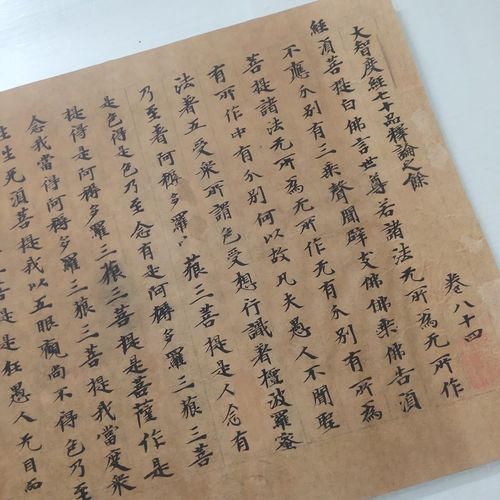 大智度經七十品釋論之餘 卷八十四
經須菩提白佛言世尊若諸法无所為无所作
不應分別有三乘聲聞辟支佛佛乘佛告須
菩提諸法无所為无所作无有分別有所為
有所作中有分別何以故凡夫愚人不聞聖
法著五受衆所謂色受想行識著檀波羅蜜
乃至著阿耨多羅三藐三菩提是人念有
是色得是色乃至念有是阿耨多羅三藐三菩
提得是阿耨多羅三藐三菩提是菩薩作是
念我當得阿耨多羅三藐三菩提我當度衆
生生无須菩提我以五眼觀尚不得色乃至
是狂愚人无目而